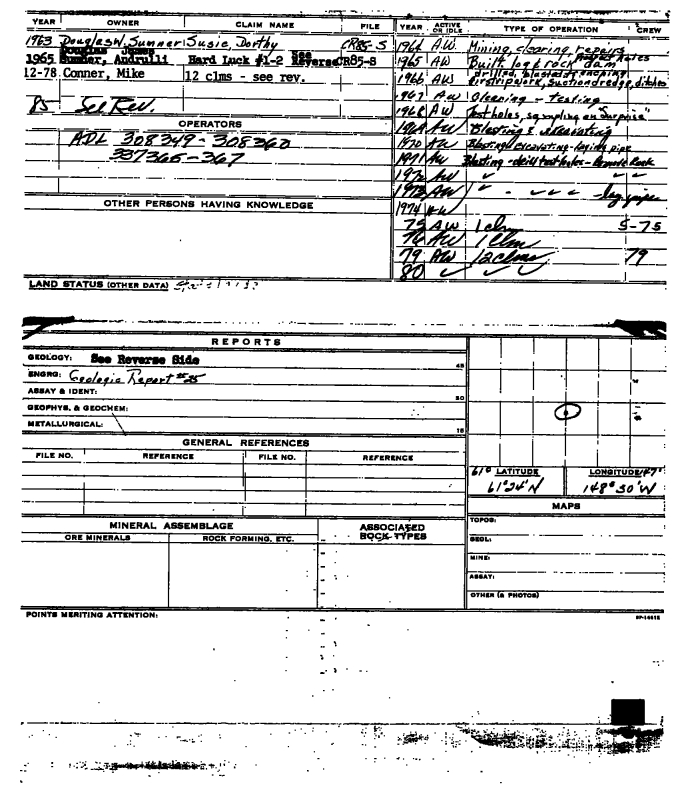 YEAR OWNER CLAIM NAME FILE
1963 Douglas W. Sumner Susie, Dorthy CR85-S
Douglas James
1965 Sumner, Andrulli Hard Luck #1-2 See Reverse CR85-S
12-78 Conner, Mike 12 clms - see rev.
85 See Rev.
OPERATORS
ADL 308349-308360
337365-367
OTHER PERSONS HAVING KNOWLEDGE
LAND STATUS (OTHER DATA)
YEAR ACTIVE OR IDLE TYPE OF OPERATION CREW
1964 A.W. Mining, clearing, repairs
1965 AW Built log & rock dam
1966 AW drilled, blasted trenching
airstrip work, suction dredge, ditches
1967 AW Cleaning - testing
1968 AW Test holes, sampling on "Surprise"
1969 AW Blasting & excavating
1970 AW Blasting excavating - laying pipe
1971 AW Blasting - drill test holes - Rock
1972 AW ✓ ✓
1973 AW ✓ - ✓ ✓ ✓ - lay pipe
1974 AW
75 AW 1 clm 5-75
76 AW 1 clm
79 AW 12 clms 79
80 ✓ ✓ ✓
REPORTS
GEOLOGY: See Reverse Side 45
ENGRG: Geologic Report #25
ASSAY & IDENT: 30
GEOPHYS. & GEOCHEM:
METALLURGICAL: 15
GENERAL REFERENCES
FILE NO. REFERENCE FILE NO. REFERENCE
61° LATITUDE LONGITUDE 147°
61°24'N 148°50'W
MAPS
TOPOG:
GEOL:
MINE:
ASSAY:
OTHER (& PHOTOS)
MINERAL ASSEMBLAGE ASSOCIATED ROCK TYPES
ORE MINERALS ROCK FORMING, ETC.
POINTS MERITING ATTENTION: